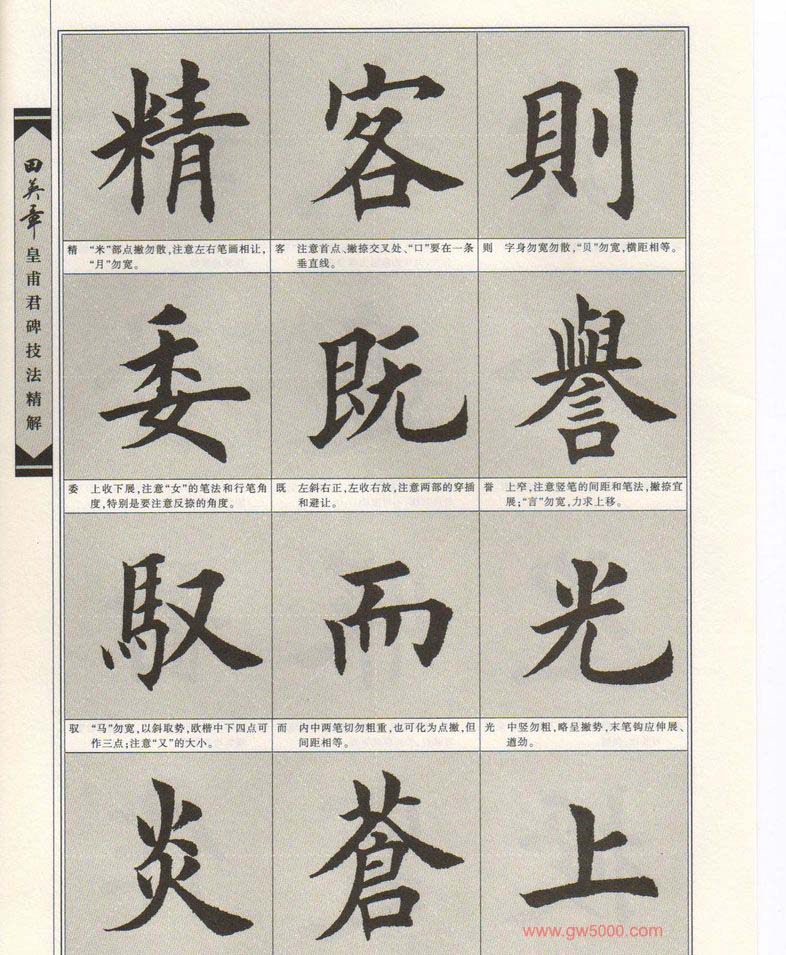 田英章
皇甫君碑技法精解
精 客 則
精 “米”部点撇勿散,注意左右笔画相让,
“月”勿宽。
客 注意首点、撇捺交叉处、“口”要在一条
垂直线。
则 字身勿宽勿散,“贝”勿宽,横距相等。
委 既 譽
委 上收下展,注意“女”的笔法和行笔角
度,特别是要注意反捺的角度。
既 左斜右正,左收右放,注意两部的穿插
和避让。
誉 上窄,注意竖笔的间距和笔法,撇捺宜
展;“言”勿宽,力求上移。
馭 而 光
驭 “马”勿宽,以斜取势,欧楷中下四点可
作三点;注意“又”的大小。
而 内中两笔切勿粗重,也可化为点撇,但
间距相等。
光 中竖勿粗,略呈撇势,末笔钩应伸展、
遒劲。
炎 蒼 上
www.gw5000.com